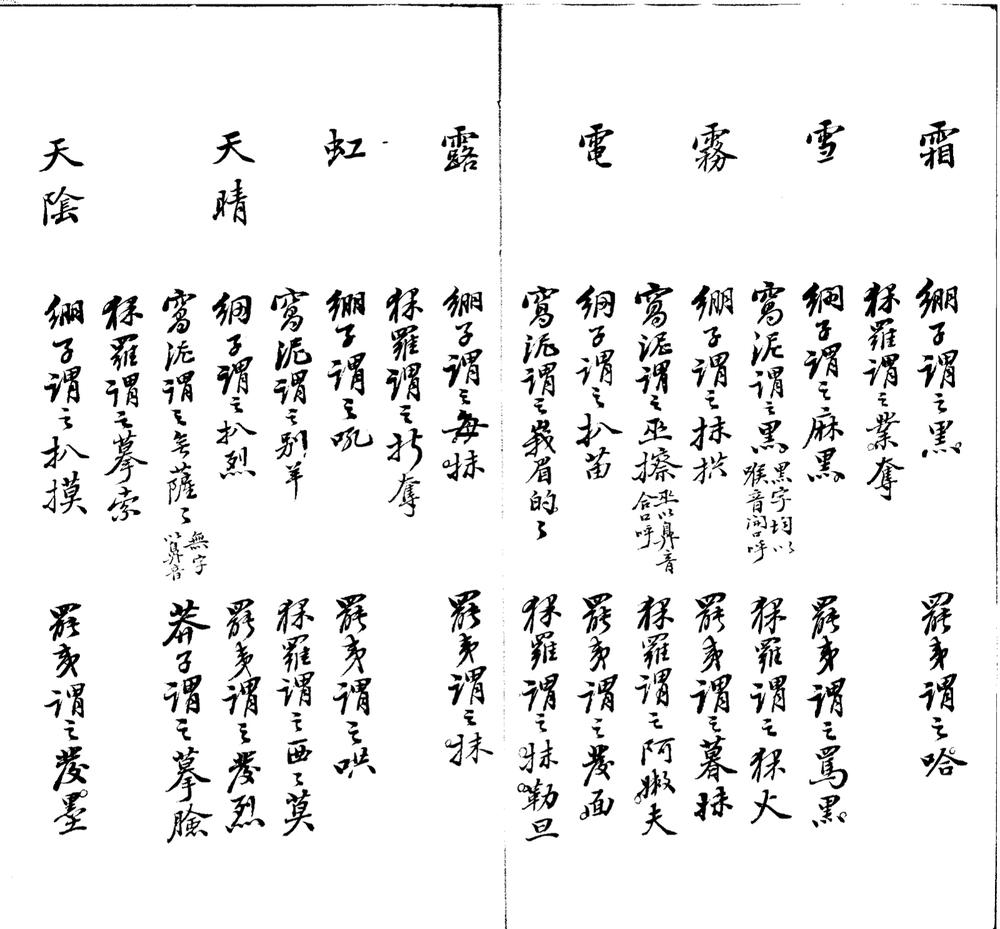 霜 繃子謂之黑 羆夷謂之哈
猓羅謂之業奪
雪 繃子謂之麻黑 羆夷謂之罵黑
窩泥謂之黑 黑字均以喉音開口呼 猓羅謂之猓火
霧 繃子謂之抹拱 羆夷謂之暮抹
窩泥謂之巫擦 巫以鼻音合口呼 猓羅謂之阿嫩夫
電 繃子謂之扒苗 羆夷謂之發面
窩泥謂之義眉的々 猓羅謂之抹勒旦
露 繃子謂之每抹 羆夷謂之抹
猓羅謂之折奪
虹 繃子謂之吼 羆夷謂之哄
窩泥謂之別羊 猓羅謂之西々莫
天晴 繃子謂之扒烈 羆夷謂之發烈
窩泥謂之無薩々 無字以鼻音 莽子謂之摹臉
猓羅謂之摹索
天陰 繃子謂之扒摸 羆夷謂之發墨